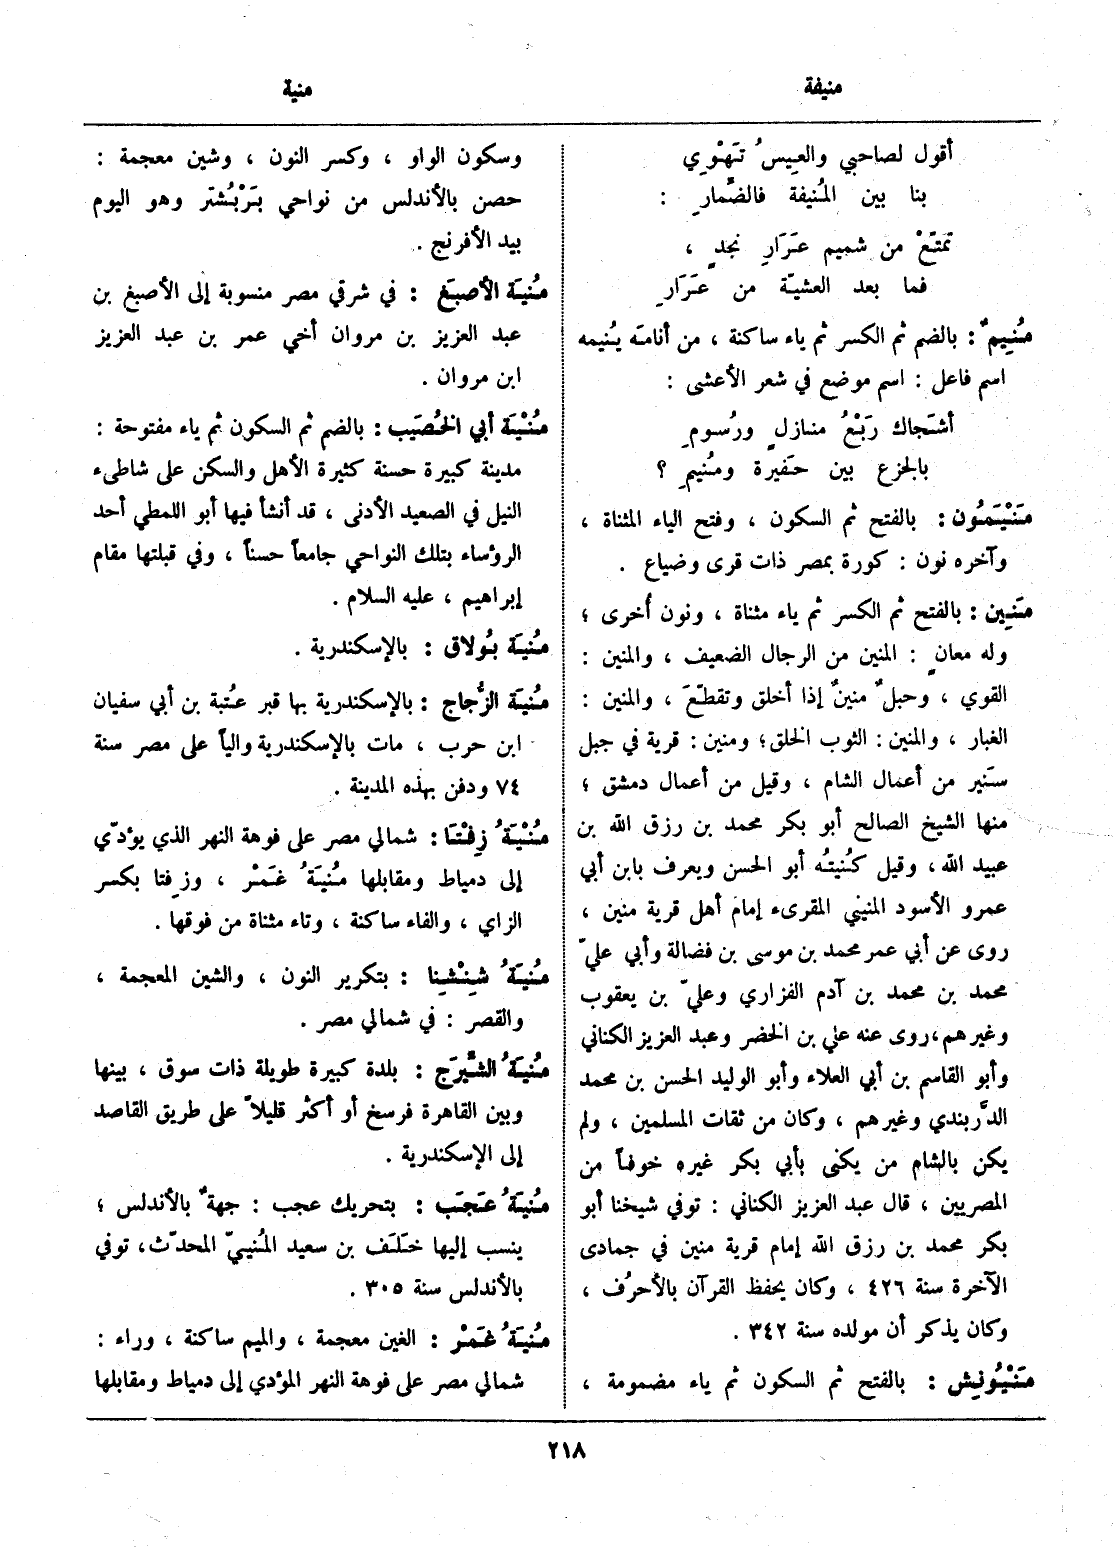 منيفة
منية
أقول لصاحبي والعِيسُ تَهْوِي
بنا بين المُنيفة فالضَّمارِ :
تمتَّعْ من شميم عَرَارِ نجدٍ ،
فما بعد العشيّة من عَرَارِ
مُنِيمٌ : بالضم ثم الكسر ثم ياء ساكنة ، من أنامَه يُنيمه
اسم فاعل : اسم موضع في شعر الأعشى :
أشَجاك رَبْعُ منازلٍ ورُسومِ
بالجزع بين حَفيرة ومُنيمِ ؟
مَنْيَمُون : بالفتح ثم السكون ، وفتح الياء المثناة ،
وآخره نون : كورة بمصر ذات قرى وضياع .
مَنِين : بالفتح ثم الكسر ثم ياء مثناة ، ونون أُخرى ؛
وله معانٍ : المنين من الرجال الضعيف ، والمنين :
القوي ، وحبلٌ منينٌ إذا أخلق وتقطّعَ ، والمنين :
الغبار ، والمنين : الثوب الخلق؛ ومنين : قرية في جبل
سَنير من أعمال الشام ، وقيل من أعمال دمشق ؛
منها الشيخ الصالح أبو بكر محمد بن رزق الله بن
عبيد الله ، وقيل كُنيتُه أبو الحسن ويعرف بابن أبي
عمرو الأسود المنيني المقرىء إمام أهل قرية منين ،
روى عن أبي عمر محمد بن موسى بن فضالة وأبي عليّ
محمد بن محمد بن آدم الفزاري وعليّ بن يعقوب
وغيرهم،روى عنه علي بن الخضر وعبد العزيز الكناني
وأبو القاسم بن أبي العلاء وأبو الوليد الحسن بن محمد
الدَّربندي وغيرهم ، وكان من ثقات المسلمين ، ولم
يكن بالشام من يكنى بأبي بكر غيره خوفاً من
المصريين ، قال عبد العزيز الكناني : توفي شيخنا أبو
بكر محمد بن رزق الله إمام قرية منين في جمادى
الآخرة سنة ٤٢٦ ، وكان يحفظ القرآن بالأحرُف ،
وكان يذكر أن مولده سنة ٣٤٢ .
مَنْيُونِش : بالفتح ثم السكون ثم ياء مضمومة ،
وسكون الواو ، وكسر النون ، وشين معجمة :
حصن بالأندلس من نواحي بَرْبُشتَر وهو اليوم
بيد الأفرنج .
مُنيَة الأصبَغ : في شرقي مصر منسوبة إلى الأصبغ بن
عبد العزيز بن مروان أخي عمر بن عبد العزيز
ابن مروان .
مُنْيَة أبي الخُصَيب : بالضم ثم السكون ثم ياء مفتوحة :
مدينة كبيرة حسنة كثيرة الأهل والسكن على شاطىء
النيل في الصعيد الأدنى ، قد أنشأ فيها أبو اللمطي أحد
الرؤساء بتلك النواحي جامعاً حسناً ، وفي قبلتها مقام
إبراهيم ، عليه السلام .
مُنيَة بُولاق : بالإسكندرية .
مُنيَة الزُّجاج : بالإسكندرية بها قبر عُتبة بن أبي سفيان
ابن حرب ، مات بالإسكندرية والياً على مصر سنة
٧٤ ودفن بهذه المدينة .
مُنْيَةُ زِفْتَا : شمالي مصر على فوهة النهر الذي يؤدّي
إلى دمياط ومقابلها مُنيَةُ غَمْر ، وزِفتا بكسر
الزاي ، والفاء ساكنة ، وتاء مثناة من فوقها .
مُنيَةُ شِنْشِنا : بتكرير النون ، والشين المعجمة ،
والقصر : في شمالي مصر .
مُنيَةُ الشِّيرَج : بلدة كبيرة طويلة ذات سوق ، بينها
وبين القاهرة فرسخ أو أكثر قليلاً على طريق القاصد
إلى الإسكندرية .
مُنيَةُ عَجَب : بتحريك عجب : جهةٌ بالأندلس ؛
ينسب إليها خَلَف بن سعيد المُنييّ المحدّث، توفي
بالأندلس سنة ٣٠٥ .
مُنيَةُ غَمْر : الغين معجمة ، والميم ساكنة ، وراء :
شمالي مصر على فوهة النهر المؤدي إلى دمياط ومقابلها
٢١٨